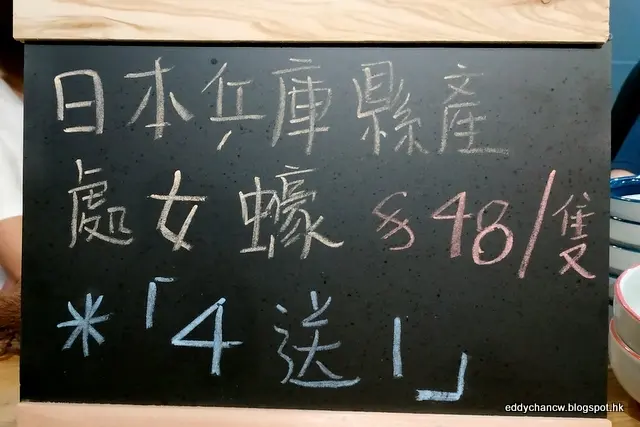 日本兵庫縣產
處女蠔 $48/隻
*「4送1」
eddychancw.blogspot.hk